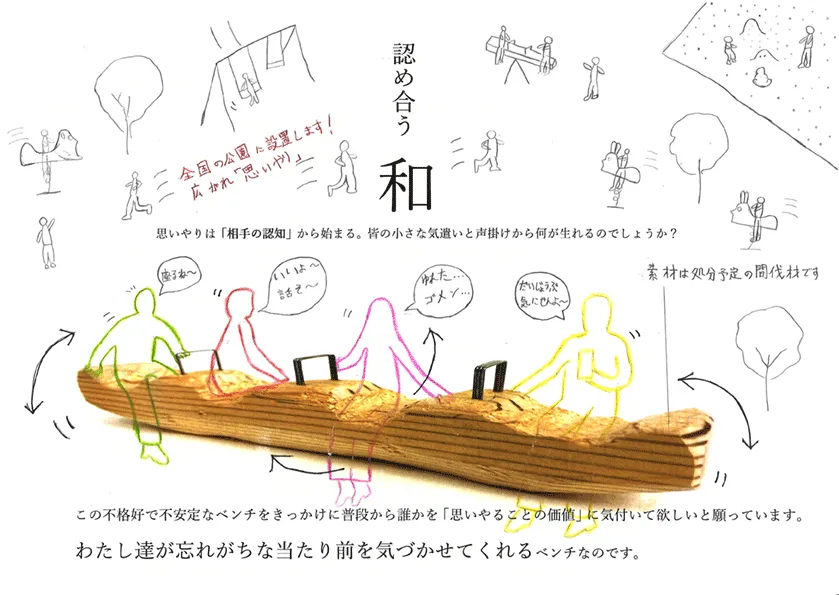 認め合う
和
全国の公園に設置します!
広がれ「思いやり」
思いやりは「相手の認知」から始まる。皆の小さな気遣いと声掛けから何が生れるのでしょうか?
素材は処分予定の間伐材です
座るね〜
いいよ〜
話そ〜
ゆれた…
ゴメン…
だいじょうぶ
気にせんよ〜
この不格好で不安定なベンチをきっかけに普段から誰かを「思いやることの価値」に気付いて欲しいと願っています。
わたし達が忘れがちな当たり前を気づかせてくれるベンチなのです。